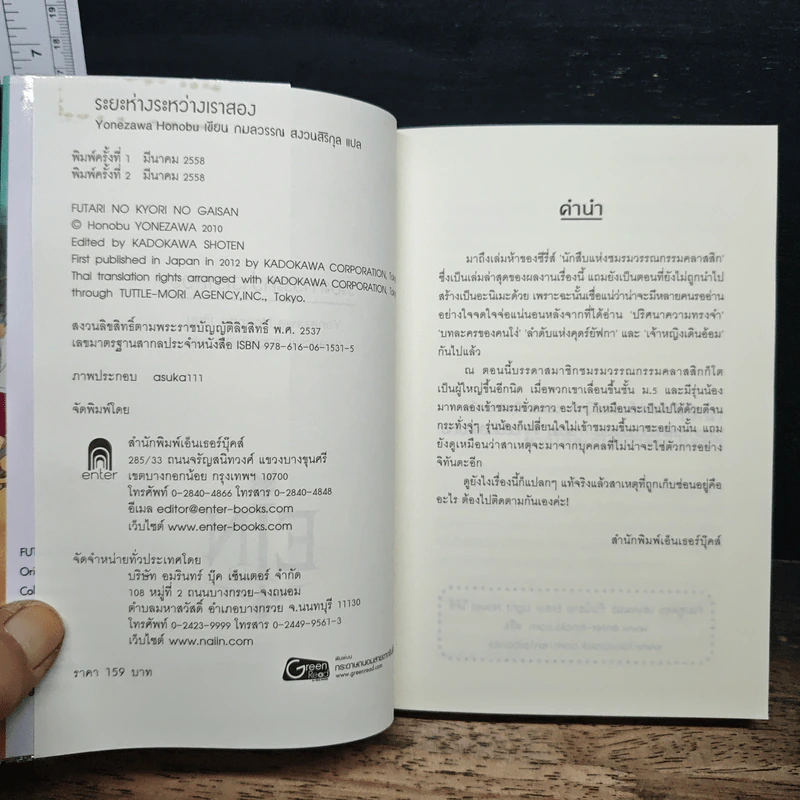 ระยะห่างระหว่างเราสอง
Yonezawa Honobu เขียน กมลวรรณ สงวนสิริกุล แปล
พิมพ์ครั้งที่ 1 มีนาคม 2558
พิมพ์ครั้งที่ 2 มีนาคม 2558
FUTARI NO KYORI NO GAISAN
© Honobu YONEZAWA 2010
Edited by KADOKAWA SHOTEN
First published in Japan in 2012 by KADOKAWA CORPORATION,
Thai translation rights arranged with KADOKAWA CORPORATION,
through TUTTLE-MORI AGENCY,INC., Tokyo.
สงวนลิขสิทธิ์ตามพระราชบัญญัติลิขสิทธิ์ พ.ศ. 2537
เลขมาตรฐานสากลประจำหนังสือ ISBN 978-616-06-1531-5
ภาพประกอบ asuka111
จัดพิมพ์โดย
enter
สำนักพิมพ์เอ็นเธอร์บุ๊คส์
285/33 ถนนจรัญสนิทวงศ์ แขวงบางขุนศรี
เขตบางกอกน้อย กรุงเทพฯ 10700
โทรศัพท์ 0-2840-4866 โทรสาร 0-2840-4848
อีเมล editor@enter-books.com
เว็บไซต์ www.enter-books.com
จัดจำหน่ายทั่วประเทศโดย
บริษัท อมรินทร์ บุ๊ค เซ็นเตอร์ จำกัด
108 หมู่ที่ 2 ถนนบางกรวย-จงถนอม
ตำบลมหาสวัสดิ์ อำเภอบางกรวย จ.นนทบุรี 11130
โทรศัพท์ 0-2423-9999 โทรสาร 0-2449-9561-3
เว็บไซต์ www.naiin.com
ราคา 159 บาท
Green Read
www.greenread.com
FUT
Ori
Col
คำนำ
มาถึงเล่มห้าของซีรี่ส์ 'นักสืบแห่งชมรมวรรณกรรมคลาสสิก'
ซึ่งเป็นเล่มล่าสุดของผลงานเรื่องนี้ แถมยังเป็นตอนที่ยังไม่ถูกนำไป
สร้างเป็นอะนิเมะด้วย เพราะฉะนั้นเชื่อแน่ว่าน่าจะมีหลายคนรออ่าน
อย่างใจจดใจจ่อแน่นอนหลังจากที่ได้อ่าน 'ปริศนาความทรงจำ'
'บทละครของคนโง่' 'ลำดับแห่งคุดรียัฟกา' และ 'เจ้าหญิงเดินอ้อม'
กันไปแล้ว
ณ ตอนนี้บรรดาสมาชิกชมรมวรรณกรรมคลาสสิกก็โต
เป็นผู้ใหญ่ขึ้นอีกนิด เมื่อพวกเขาเลื่อนขึ้นชั้น ม.5 และมีรุ่นน้อง
มาทดลองเข้าชมรมชั่วคราว อะไรๆ ก็เหมือนจะเป็นไปได้ด้วยดีจน
กระทั่งจู่ๆ รุ่นน้องก็เปลี่ยนใจไม่เข้าชมรมขึ้นมาซะอย่างนั้น แถม
ยังดูเหมือนว่าสาเหตุจะมาจากบุคคลที่ไม่น่าจะใช่ตัวการอย่าง
จิทันดะอีก
ดูยังไงเรื่องนี้ก็แปลกๆ แท้จริงแล้วสาเหตุที่ถูกเก็บซ่อนอยู่คือ
อะไร ต้องไปติดตามกันเองค่ะ!
สำนักพิมพ์เอ็นเธอร์บุ๊คส์